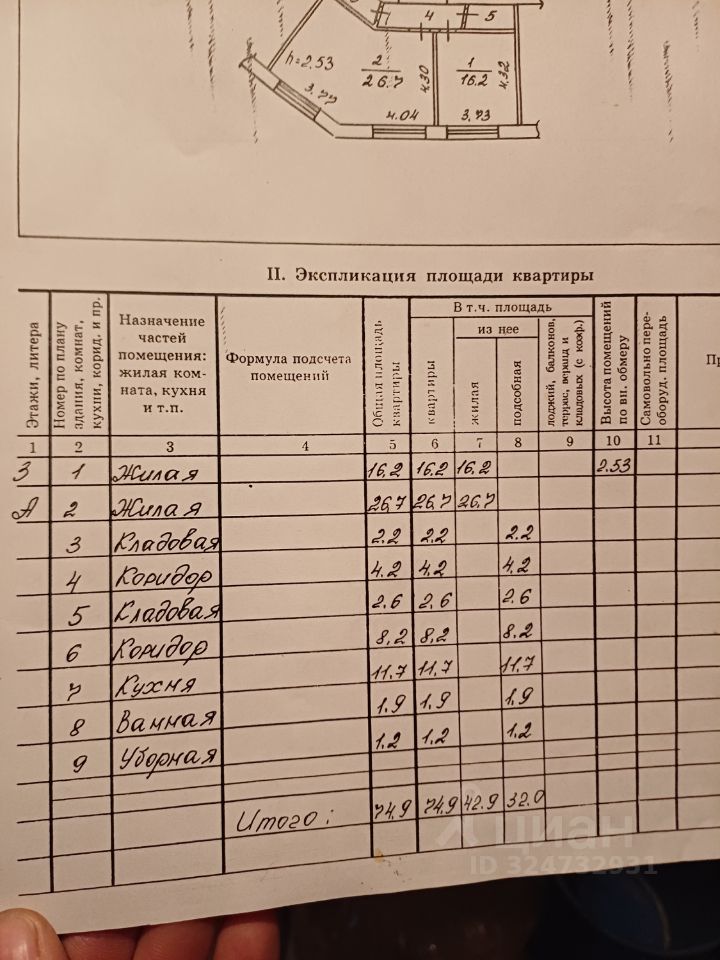 4 5
h=2.53
2
26.7
4.30
1
16.2
4.32
3.77
4.04
3.73
II. Экспликация площади квартиры
Этажи, литера
Номер по плану здания, комнат, кухни, корид. и пр.
Назначение
частей
помещения:
жилая ком-
ната, кухня
и т.п.
Формула подсчета
помещений
Общая площадь
квартиры
В т.ч. площадь
квартиры
из нее
жилая
подсобная
лоджий, балконов,
террас, веранд и
кладовых (с коэф.)
Высота помещений
по вн. обмеру
Самовольно пере-
оборуд. площадь
Пр
1 2 3 4 5 6 7 8 9 10 11
3 1 Жилая 16.2 16.2 16.2 2.53
А 2 Жилая 26,7 26,7 26.7
3 Кладовая 2.2 2.2 2.2
4 Коридор 4.2 4.2 4.2
5 Кладовая 2.6 2.6 2.6
6 Коридор 8,2 8,2 8.2
7 Кухня 11.7 11.7 11.7
8 Ванная 1.9 1.9 1.9
9 Уборная 1.2 1.2 1.2
Итого: 74,9 74,9 42.9 32.0
циан
ID 324732931